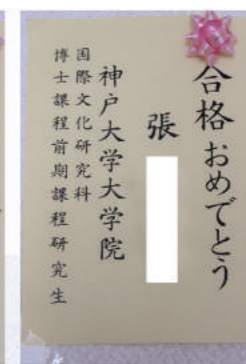 合格おめでとう
張
神戸大学大学院
国際文化研究科
博士課程前期課程研究生